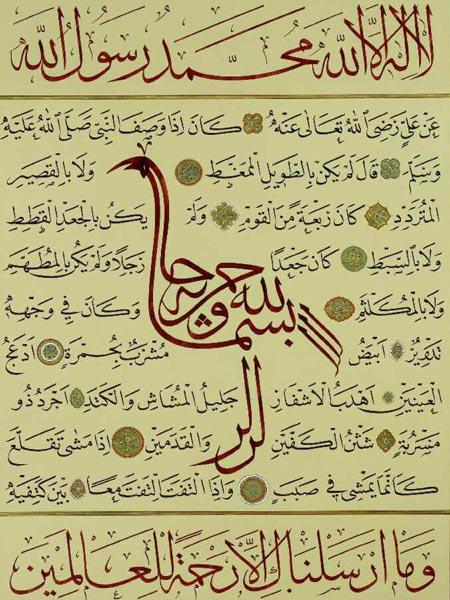 لا اله الا الله محمد رسول الله
عَنْ عَلِيٍّ رَضِيَ اللهُ تَعَالٰى عَنْهُ كَانَ اِذَا وَصَفَ النَّبِيَّ صَلَّى اللهُ عَلَيْهِ
وَسَلَّمَ قَالَ لَمْ يَكُنْ بِالطَّوِيلِ الْمُمَغَّطِ وَلَا بِالْقَصِيرِ
الْمُتَرَدِّدِ كَانَ رَبْعَةً مِنَ الْقَوْمِ وَلَمْ يَكُنْ بِالْجَعْدِ الْقَطَطِ
وَلَا بِالسَّبِطِ كَانَ جَعْدًا رَجِلًا وَلَمْ يَكُنْ بِالْمُطَهَّمِ
وَلَا بِالْمُكَلْثَمِ وَكَانَ فِي وَجْهِهِ
تَدْوِيرٌ اَبْيَضُ مُشْرَبٌ بِحُمْرَةٍ اَدْعَجُ
الْعَيْنَيْنِ اَهْدَبُ الْاَشْفَارِ جَلِيلُ الْمُشَاشِ وَالْكَتَدِ اَجْرَدُ ذُو
مَسْرُبَةٍ شَثْنُ الْكَفَّيْنِ وَالْقَدَمَيْنِ اِذَا مَشٰى تَقَلَّعَ
كَاَنَّمَا يَمْشِي فِي صَبَبٍ وَاِذَا الْتَفَتَ الْتَفَتَ مَعًا بَيْنَ كَتِفَيْهِ
بسم الله
وما ارسلناك الا رحمة للعالمين